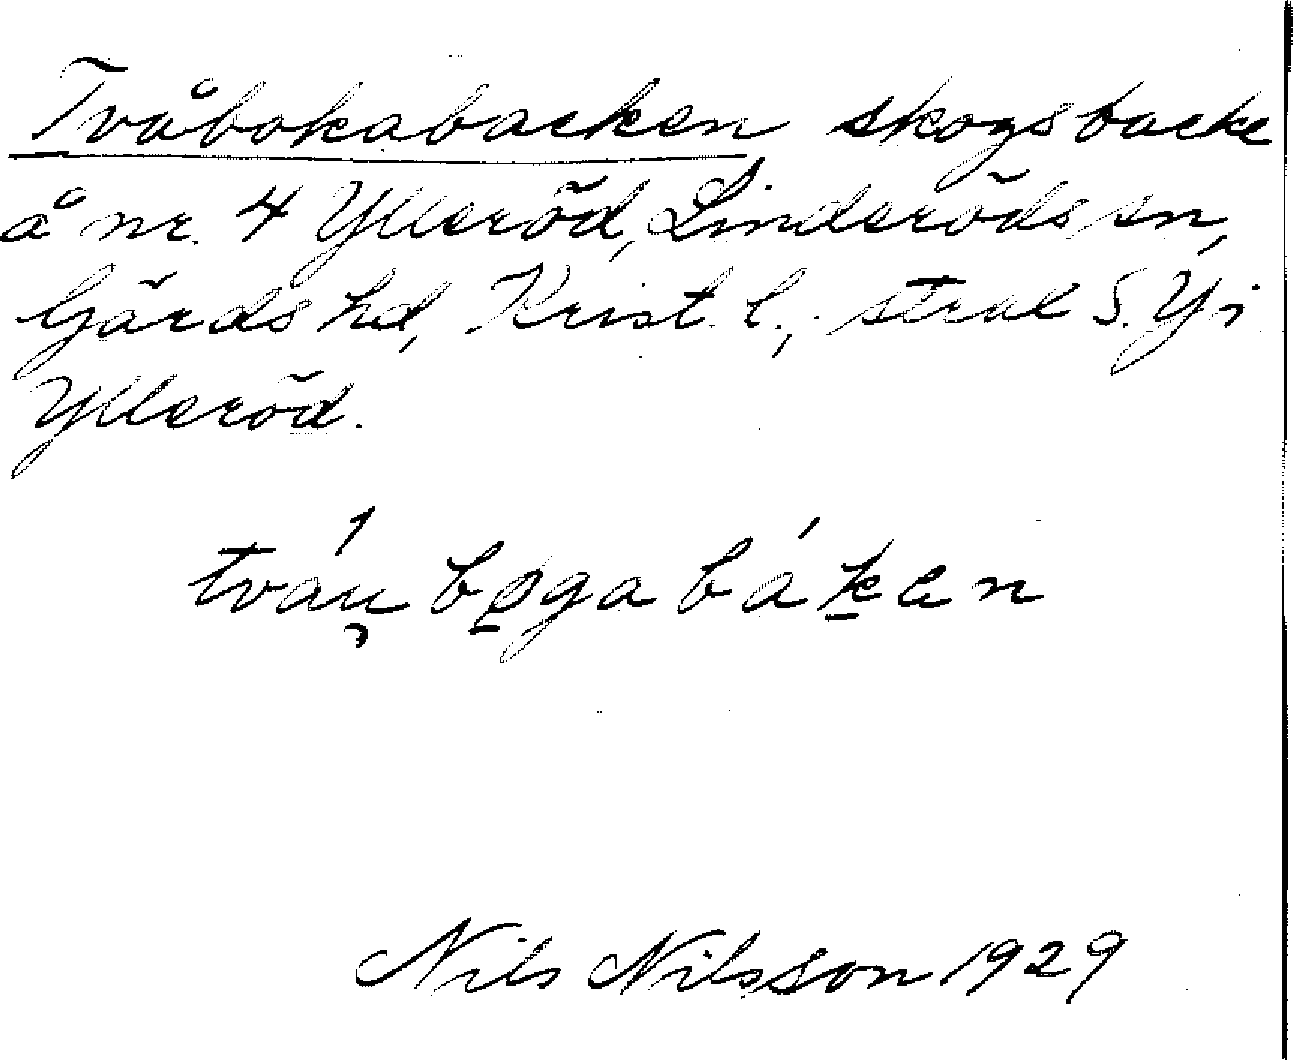 Tvåbokabacken skogsbacke
å nr. 4 Ylleröd, Linderöds sn,
Gärds hd, Krist. l.,
Ylleröd.
tváu̯ bo̲gabák̲en
Nils Nilsson 1929